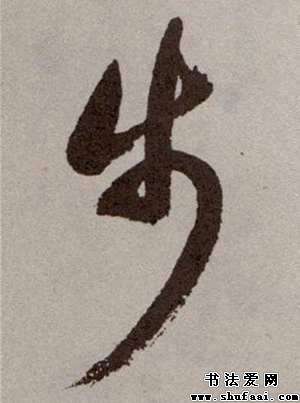 步
书法爱网
www.shufaai.com